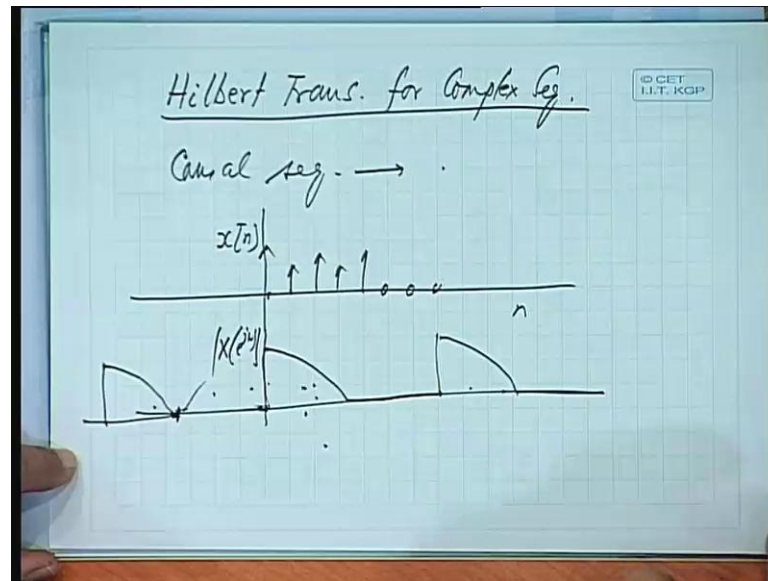 Hilbert Trans. for Complex Seq.
© CET
I.I.T. KGP
Causal seq. →
x[n]
n
|X(e^{jω})|